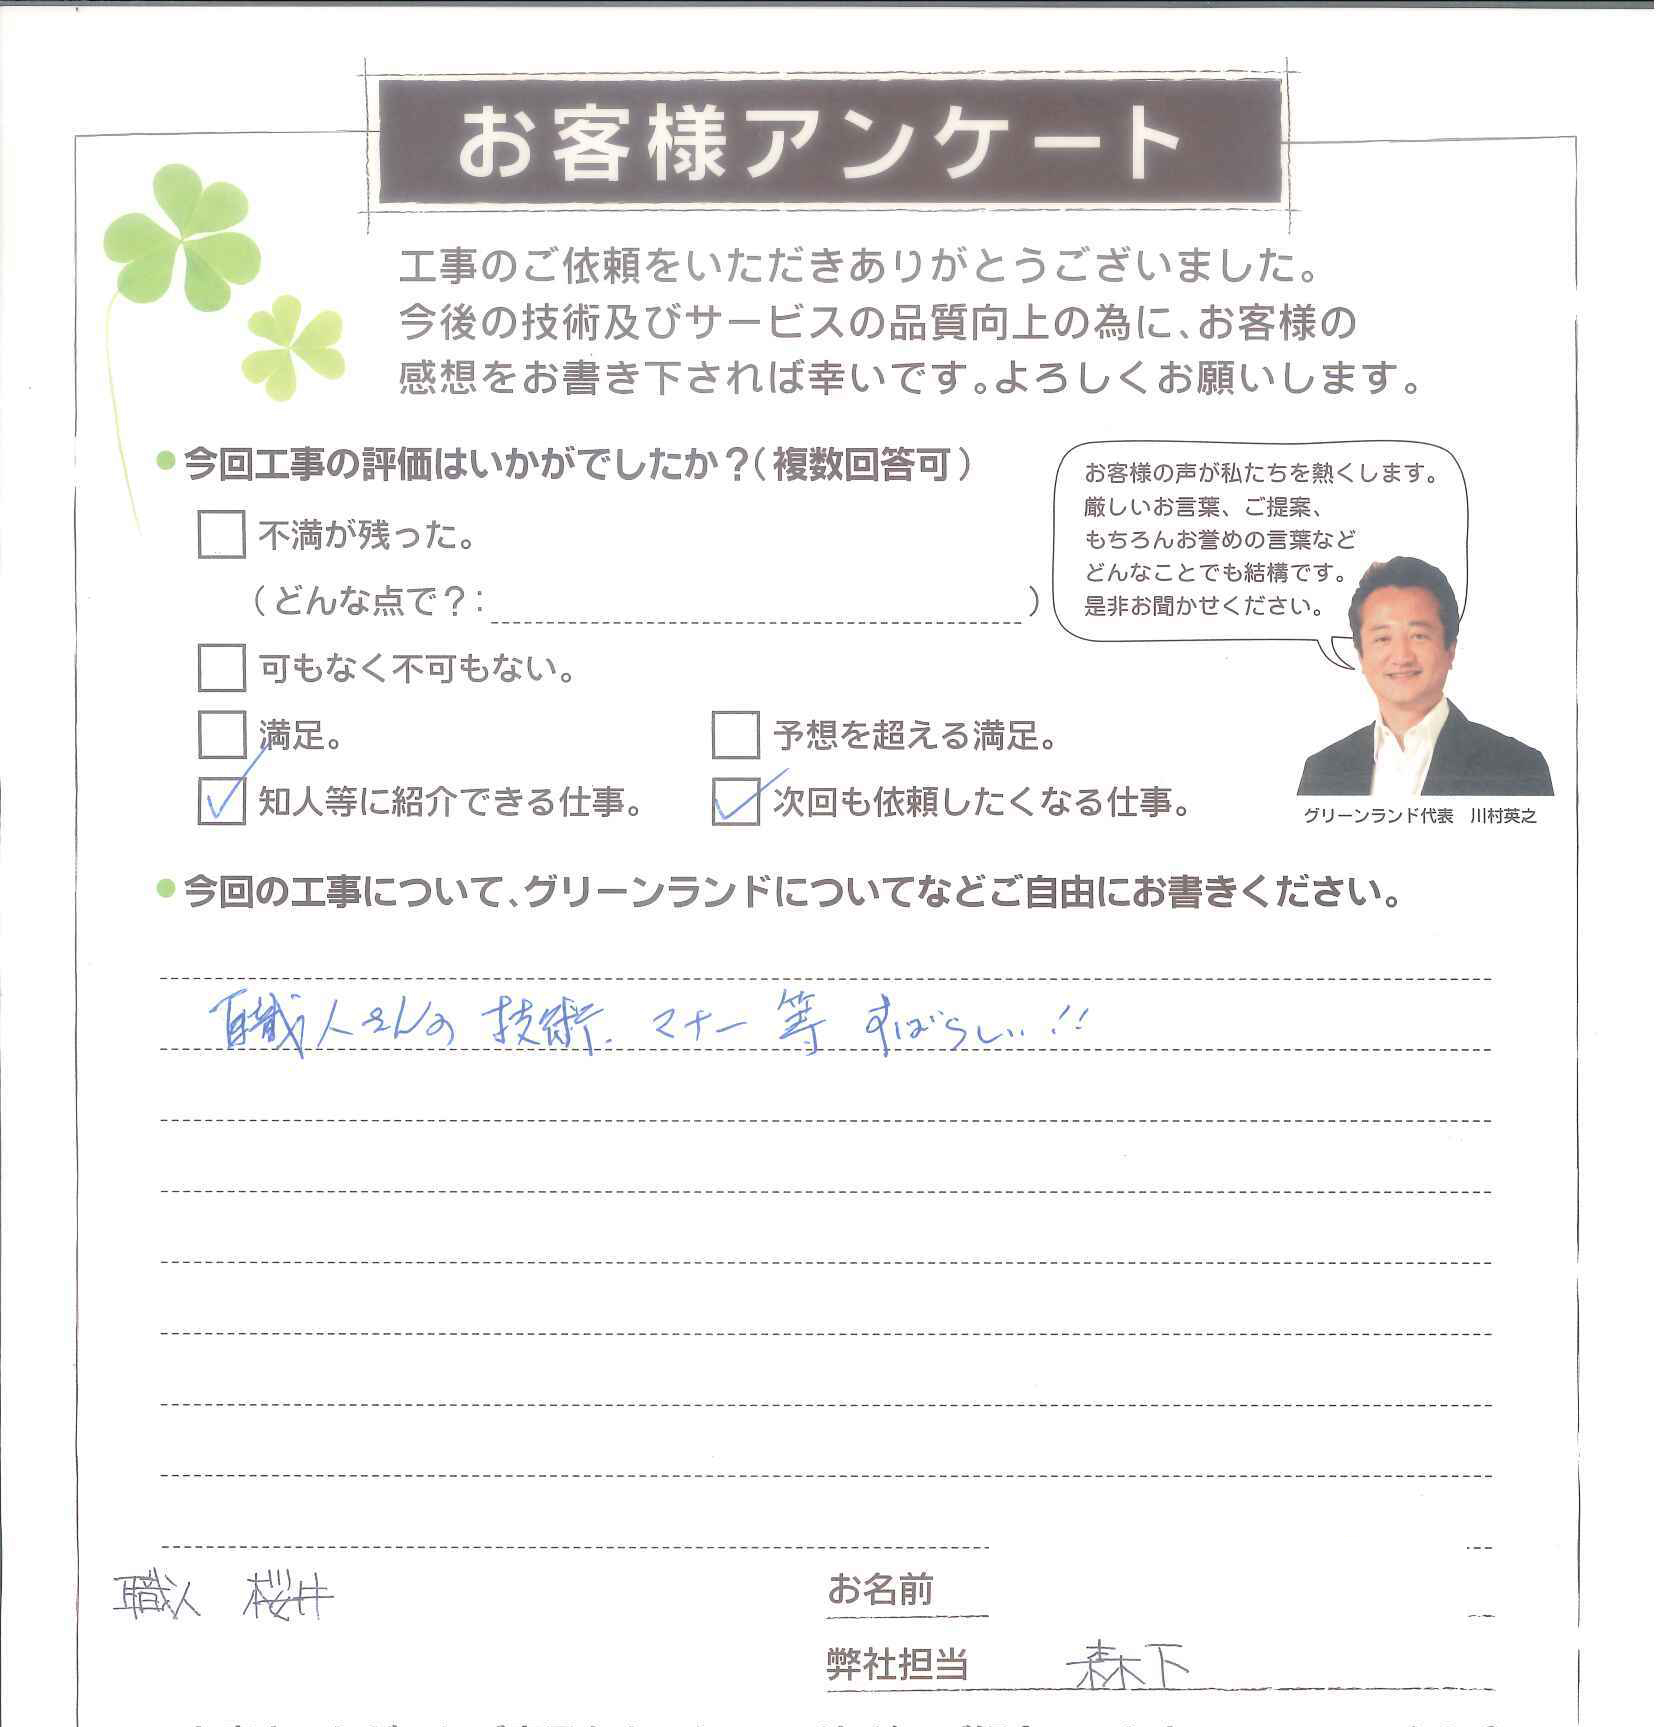 お客様アンケート
工事のご依頼をいただきありがとうございました。
今後の技術及びサービスの品質向上の為に、お客様の
感想をお書き下されば幸いです。よろしくお願いします。
今回工事の評価はいかがでしたか？（複数回答可）
不満が残った。
（どんな点で？：　）
可もなく不可もない。
満足。
予想を超える満足。
知人等に紹介できる仕事。
次回も依頼したくなる仕事。
お客様の声が私たちを熱くします。
厳しいお言葉、ご提案、
もちろんお誉めの言葉など
どんなことでも結構です。
是非お聞かせください。
グリーンランド代表　川村英之
今回の工事について、グリーンランドについてなどご自由にお書きください。
職人さんの 技術、マナー 等 すばらしい!!
職人 桜井
お名前
弊社担当 森下